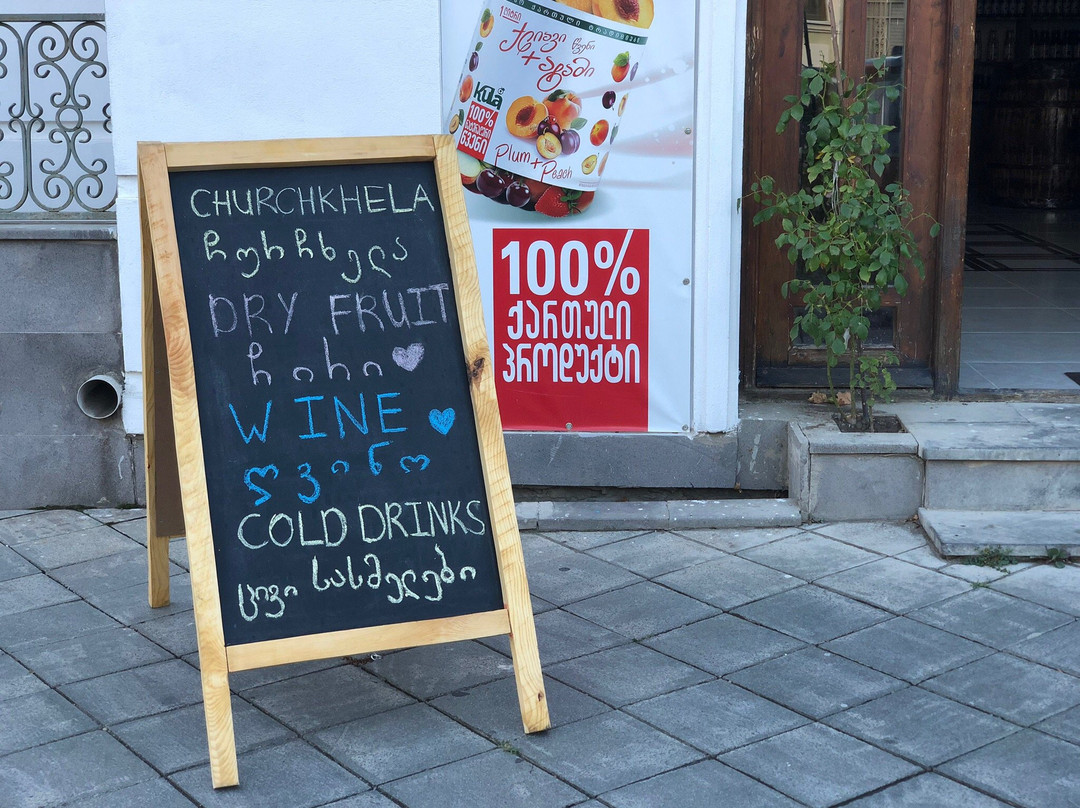 CHURCHKHELA
ჩურჩხელა
DRY FRUIT
ჩირი
WINE
ღვინო
COLD DRINKS
ცივი სასმელები
ქლიავი
+ატამი
kula
100%
ნატურალური
წვენი
Plum+
Peach
100%
ქართული
პროდუქტი